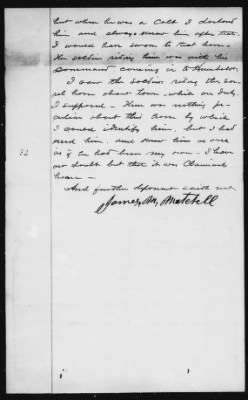 but when he was a Colt I doctored
him and always knew him after that.
I would have sworn to that horse.
The soldier riding him was with his
command coming in to Humboldt.
I saw the soldier riding the sor-
rel horse about town, while on duty
I supposed. There was nothing pe-
culiar about this horse by which
I could identify him, but I had
used him, and knew him as well
as if he had been my own. I have
no doubt but that it was Claimants
horse —
And further deponent saith not
James M. Mitchell